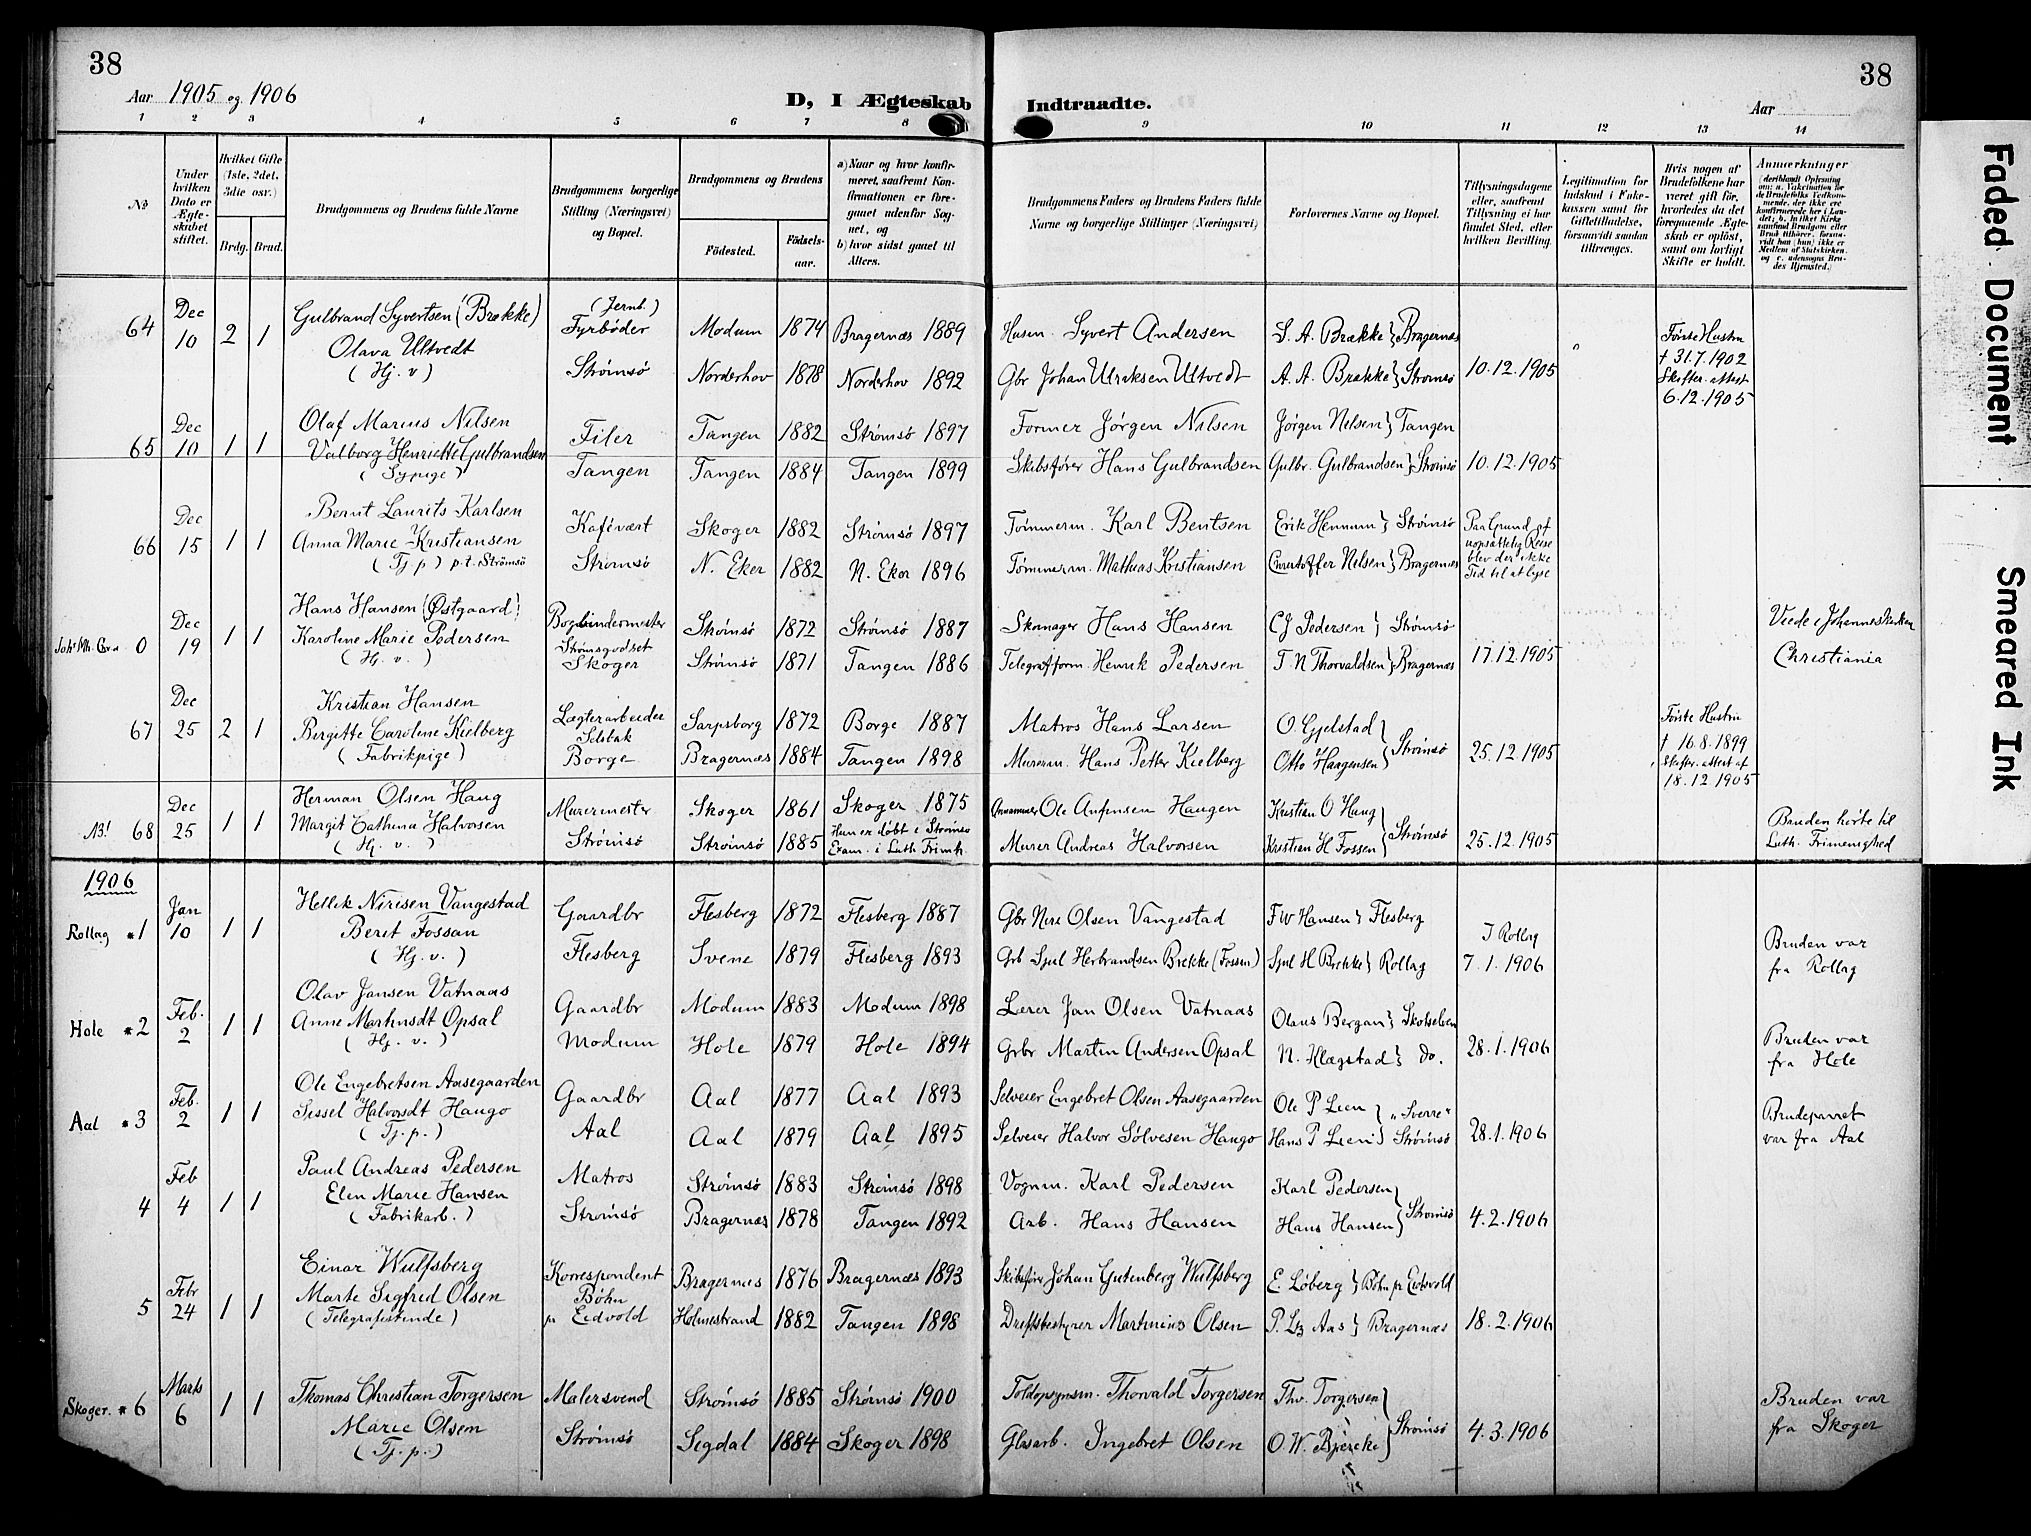 38
Aar 1905 og 1906
D, I Ægteskab Indtraadte.
Aar
38
1 2 3 4 5 6 7 8 9 10 11 12 13 14
No
Under hvilken Dato er Ægteskabet stiftet.
Hvilket Gifte (1ste, 2det, 3die osv.)
Brdg. Brud.
Brudgommens og Brudens fulde Navne
Brudgommens borgerlige Stilling (Næringsvei) og Bopæl.
Brudgommens og Brudens
Födested. Födselsaar.
a) Naar og hvor konfirmeret, saafremt Konfirmationen er foregaaet udenfor Sognet, og
b) hvor sidst gaaet til Alters.
Brudgommens Faders og Brudens Faders fulde Navne og borgerlige Stillinger (Næringsvei)
Forlovernes Navne og Bopæl.
Tillysningsdagene eller, saafremt Tillysning ei har fundet Sted, efter hvilken Bevilling.
Legitimation for Indskud i Enkekassen samt for Giftetilladelse, forsaavidt saadan tiltrænges.
Hvis nogen af Brudefolkene har været gift för, hvorledes da det foregaaende Ægteskab er oplöst, samt om lovligt Skifte er holdt.
Anmærkninger (deriblandt Oplysning om: a. Vakcination for de Brudefolks Vedkommende, der ikke ere konfirmerede her i Landet; b. hvilket Kirkesamfund Brudgom eller Brud tilhører, forsaavidt han (hun) ikke er Medlem af Statskirken, og c. udensogns Brudes Hjemsted.)
64 Dec 10 2 1 Gulbrand Syvertsen (Brække) (Jernb.) Fyrbøder Modum 1874 Bragernæs 1889 Husm. Syvert Andersen S. A. Brække } Bragernæs Første Hustru
Olava Ultvedt (Hj. v) Strømsø Norderhov 1878 Norderhov 1892 Gbr Johan Ulriksen Ultvedt A. A. Brække } Strømsø 10.12.1905 † 31.7.1902 Skifter. attest 6.12.1905
65 Dec 10 1 1 Olaf Marius Nilsen Filer Tangen 1882 Strømsø 1897 Former Jørgen Nilsen Jörgen Nilsen } Tangen
Valborg Henriette Gulbrandsen (Sypige) Tangen Tangen 1884 Tangen 1899 Skibsfører Hans Gulbrandsen Gulbr. Gulbrandsen } Strømsø 10.12.1905
66 Dec 15 1 1 Bernt Laurits Karlsen Kafévært Skoger 1882 Strømsø 1897 Tømmerm. Karl Bentsen Erik Hennum } Strømsø Paa Grund af uopsættelig Reise
Anna Marie Kristiansen (Tj p) p.t. Strømsø Strømsø N. Eker 1882 N. Eker 1896 Tømmerm. Mathias Kristiansen Christoffer Nilsen } Bragernæs blev der ikke Tid til at lyse
0 Dec 19 1 1 Hans Hansen (Østgaard) Bogbindermester Strømsø 1872 Strømsø 1887 Skomager Hans Hansen CJ Pedersen } Strømsø Viede i Johanneskirken
Karoline Marie Pedersen (Hj. v.) Strømsgodset Skoger Strømsø 1871 Tangen 1886 Telegrafform. Henrik Pedersen T N Thorvaldsen } Bragernæs 17.12.1905 Christiania
67 Dec 25 2 1 Kristian Hansen Lægterarbeider Selbak Sarpsborg 1872 Borge 1887 Matros Hans Larsen O. Gjelstad Første Hustru
Birgitte Caroline Kielberg (Fabrikpige) Borge Bragernæs 1884 Tangen 1898 Murerm. Hans Petter Kielberg Otto Haagensen } Strømsø 25.12.1905 † 16.8.1899 Skifter. attest af 18.12 1905
NB! 68 Dec 25 1 1 Herman Olsen Haug Murermester Skoger 1861 Skoger 1875 Ole Anfinsen Haugen Kristian O Haug Bruden hørte til
Margit Cathina Halvorsen (Hj. v.) Strømsø Strømsø 1885 Hun er døbt i Strømsø Exam. i Luth. Frimh. Murer Andreas Halvorsen Kristian H Fossen } Strømsø 25.12.1905 Luth. Frimenighed
1906
Rollag *1 Jan 10 1 1 Hellik Nirisen Vangestad Gaardbr Flesberg 1872 Flesberg 1887 Gbr Niri Olsen Vangestad F W Hansen } Flesberg I Rollag
Berit Fossan (Hj. v.) Flesberg Svene 1879 Flesberg 1893 Grb Sjul Herbrandsen Brekke (Fossan) Sjul H Brekke } Rollag 7.1.1906 Bruden var fra Rollag
Hole *2 Feb. 2 1 1 Olav Jansen Vatnaas Gaardbr Modum 1883 Modum 1898 Lærer Jan Olsen Vatnaas Olaus Bergan } Skotselven
Anne Martinsdt Opsal (Hj. v.) Modum Hole 1879 Hole 1894 Grbr Martin Andersen Opsal N. Klægstad } do. 28.1.1906 Bruden var fra Hole
Aal *3 Feb. 2 1 1 Ole Engebretsen Aasegaarden Gaardbr Aal 1877 Aal 1893 Selveier Engebret Olsen Aasegaarden Ole P Lien } "Sverre"
Sissel Halvorsdt Haugo (Tj. p.) Aal Aal 1879 Aal 1895 Selveier Halvor Sølvesen Haugo Hans P Lien } Strømsø 28.1.1906 Brudeparret var fra Aal
4 Feb 4 1 1 Paul Andreas Pedersen Matros Strømsø 1883 Strømsø 1898 Vognm. Karl Pedersen Karl Pedersen
Elen Marie Hansen (Fabrikarb.) Strømsø Bragernæs 1878 Tangen 1892 Arb. Hans Hansen Hans Hansen } Strømsø 4.2.1906
5 Febr 24 1 1 Einar Wulfsberg Korrespondent Bøhn Bragernæs 1876 Bragernæs 1893 Skibsfører Johan Gutenberg Wulfsberg E. Löberg } Böhn pr Eidsvold
Marte Sigfrid Olsen (Telegrafistinde) pr Eidvold Holmestrand 1882 Tangen 1898 Driftsbestyrer Martinius Olsen P. Aas } Bragernæs 18.2.1906
Skoger. *6 Marts 6 1 1 Thomas Christian Torgersen Malersvend Strømsø 1885 Strømsø 1900 Toldopsynsm. Thorvald Torgersen Thv. Torgersen Bruden var
Marie Olsen (Tj. p.) Strømsø Sigdal 1884 Skoger 1898 Glasarb. Ingebret Olsen O. W. Bjercke } Strømsø 4.3.1906 fra Skoger
Faded Document
Smeared Ink